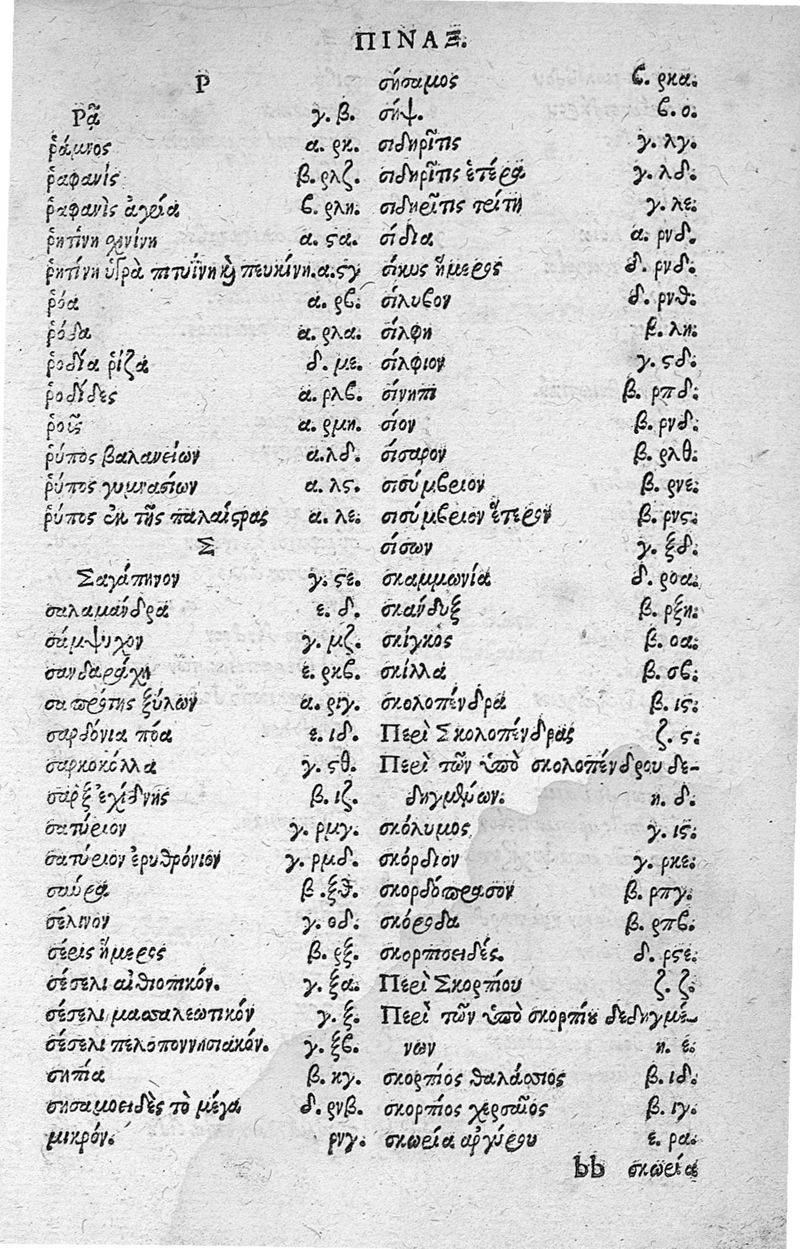 ΠΙΝΑΞ.
Ρ
Ρᾶ γ. β.
ῥάμνος α. ρκ.
ῥαφανὶς β. ρλζ.
ῥαφανὶς ἀγρία β. ρλη.
ῥητίνη σχινίνη α. ϟα.
ῥητίνη ὑγρὰ πιτυΐνη καὶ πευκίνη. α. ϟγ
ῥόα α. ρβ.
ῥόδα α. ρλα.
ῥοδία ῥίζα δ. με.
ῥοδίδες α. ρλβ.
ῥοῦς α. ρμη.
ῥύπος βαλανείων α. λδ.
ῥύπος γυμνασίων α. λς.
ῥύπος ἐκ τῆς παλαίςρας α. λε.
Σ
Σαγάπηνον γ. ϟε.
σαλαμάνδρα ε. δ.
σάμψυχον γ. μζ.
σανδαράχη ε. ρκβ.
σαπρότης ξύλων α. ριγ.
σαρδόνια πόα ε. ιδ.
σαρκοκόλλα γ. ϟθ.
σαρξ ἐχίδνης β. ιζ.
σατύριον γ. ρμγ.
σατύριον ἐρυθρόνιον γ. ρμδ.
σαύρα β. ξθ.
σέλινον γ. οδ.
σέρις ἥμερος β. ρξ.
σέσελι αἰθιοπικόν. γ. ξα.
σέσελι μασσαλεωτικόν γ. ξ.
σέσελι πελοποννησιακόν. γ. ξβ.
σηπία β. κγ.
σησαμοειδὲς τὸ μέγα δ. ρνβ.
μικρόν. ρνγ.
σήσαμος β. ρκα.
σήψ. β. ο.
σιδηρῖτις γ. λγ.
σιδηρῖτις ἑτέρα γ. λδ.
σιδηρῖτις τρίτη γ. λε.
σίδια α. ρνδ.
σίκυς ἥμερος δ. ρνδ.
σίλυβον δ. ρνθ.
σίλφη β. λη.
σίλφιον γ. ϟδ.
σίνηπι β. ρπδ.
σίον β. ρνδ.
σίσαρον β. ρλθ.
σισύμβριον β. ρνε.
σισύμβριον ἕτερον β. ρνς.
σίσων γ. ξδ.
σκαμμωνία δ. ροα.
σκάνδυξ β. ρξη.
σκίγκος β. οα.
σκίλλα β. σβ.
σκολοπένδρα β. ις.
Περὶ Σκολοπένδρας ζ. ς.
Περὶ τῶν ὑπὸ σκολοπένδρου δε-
δηγμένων. η. δ.
σκόλυμος γ. ις.
σκόρδιον γ. ρκε.
σκορδόπρασον β. ρπγ.
σκόροδα β. ρπβ.
σκορπιοειδές. δ. ρϟε.
Περὶ Σκορπίου ζ. ζ.
Περὶ τῶν ὑπὸ σκορπίου δεδηγμέ-
νων η. ε.
σκορπίος θαλάσσιος β. ιδ.
σκορπίος χερσαῖος β. ιγ.
σκωρία ἀργύρου ε. ρα.
bb σκωρία